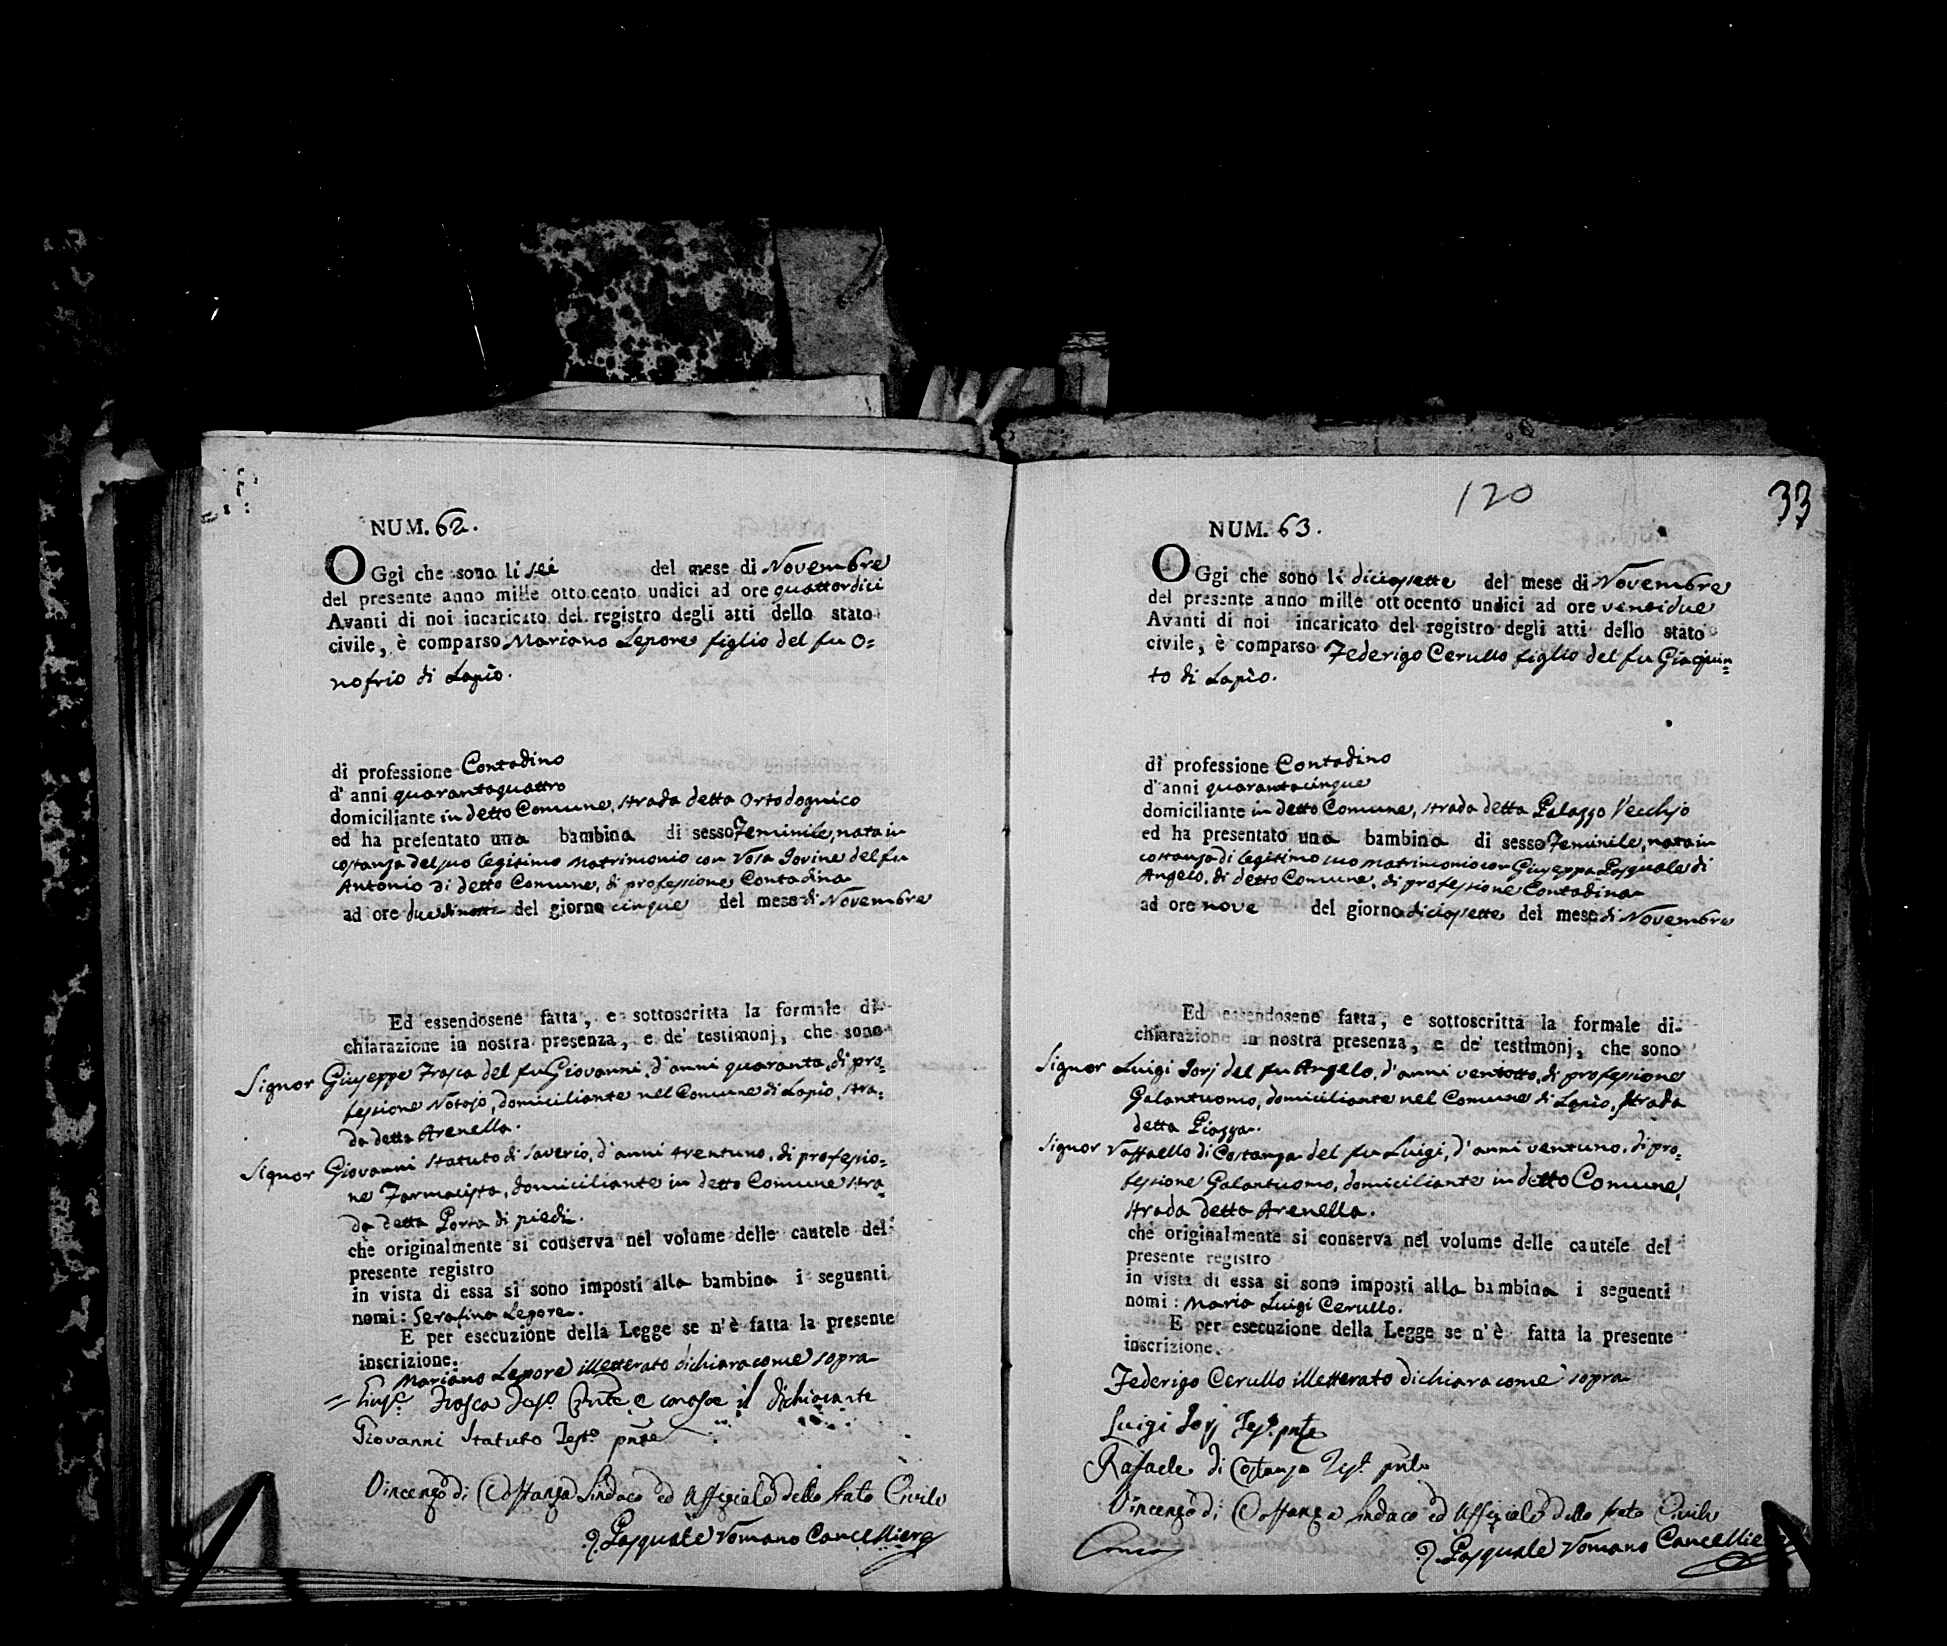 NUM. 62.
OGgi che sono li sei del mese di Novembre
del presente anno mille ottocento undici ad ore quattordici
Avanti di noi incaricato del registro degli atti dello stato
civile, è comparso Mariano Lepore figlio del fu O=
nofrio di Lapio.
di professione Contadino
d'anni quarantaquattro
domiciliante in detto Comune, strada detta Ortodognico
ed ha presentato una bambina di sesso Feminile, nata in
costanza del suo legitimo matrimonio con Rosa Iovine del fu
Antonio di detto Comune, di professione Contadina
ad ore due di notte del giorno cinque del mese di Novembre
Ed essendosene fatta, e sottoscritta la formale di-
chiarazione in nostra presenza, e de' testimonj, che sono
Signor Giuseppe Frasca del fu Giovanni, d'anni quaranta, di pro=
fessione Notajo, domiciliante nel Comune di Lapio, stra=
da detta Arenella.
Signor Giovanni Statuto di Saverio, d'anni trentuno, di professio=
ne Farmacista, domiciliante in detto Comune stra=
da detta Porta di piedi.
che originalmente si conserva nel volume delle cautele del
presente registro
in vista di essa si sono imposti alla bambina i seguenti
nomi: Serafina Lepore.
E per esecuzione della Legge se n'è fatta la presente
inscrizione.
Mariano Lepore illetterato dichiara come sopra
= Frasca e conosce il dichiarante
Giovanni Statuto Testo. pnte
Vincenzo di Costanza Sindaco ed Uffiziale dello stato Civile
Pasquale Romano Cancelliere
120
33
NUM. 63.
OGgi che sono li diciassette del mese di Novembre
del presente anno mille ottocento undici ad ore ventidue
Avanti di noi incaricato del registro degli atti dello stato
civile, è comparso Federigo Cerullo figlio del fu Giacquin=
to di Lapio.
di professione Contadino
d'anni quarantacinque
domiciliante in detto Comune, strada detta Palazzo Vecchjo
ed ha presentato una bambina di sesso Feminile, nata in
costanza di legitimo suo matrimonio con Giuseppa Pasquale di
Angelo, di detto Comune, di professione Contadina
ad ore nove del giorno diciassette del mese di Novembre
Ed essendosene fatta, e sottoscritta la formale di-
chiarazione in nostra presenza, e de' testimonj, che sono
Signor Luigi Iorj del fu Angelo, d'anni ventotto, di professione
Galantuomo, domiciliante nel Comune di Lapio, strada
detta Piazza.
Signor Raffaello di Costanza del fu Luigi, d'anni ventuno, di pro=
fessione Galantuomo, domiciliante in detto Comune,
strada detta Arenella.
che originalmente si conserva nel volume delle cautele del
presente registro
in vista di essa si sono imposti alla bambina i seguenti
nomi: Maria Luigi Cerullo.
E per esecuzione della Legge se n'è fatta la presente
inscrizione.
Federigo Cerullo illetterato dichiara come sopra
Luigi Iorj Testo. pnte
Rafaele di Costanza Testo. pnte
Vincenzo di Costanza Sindaco ed Uffiziale dello stato Civile
Pasquale Romano Cancelliere